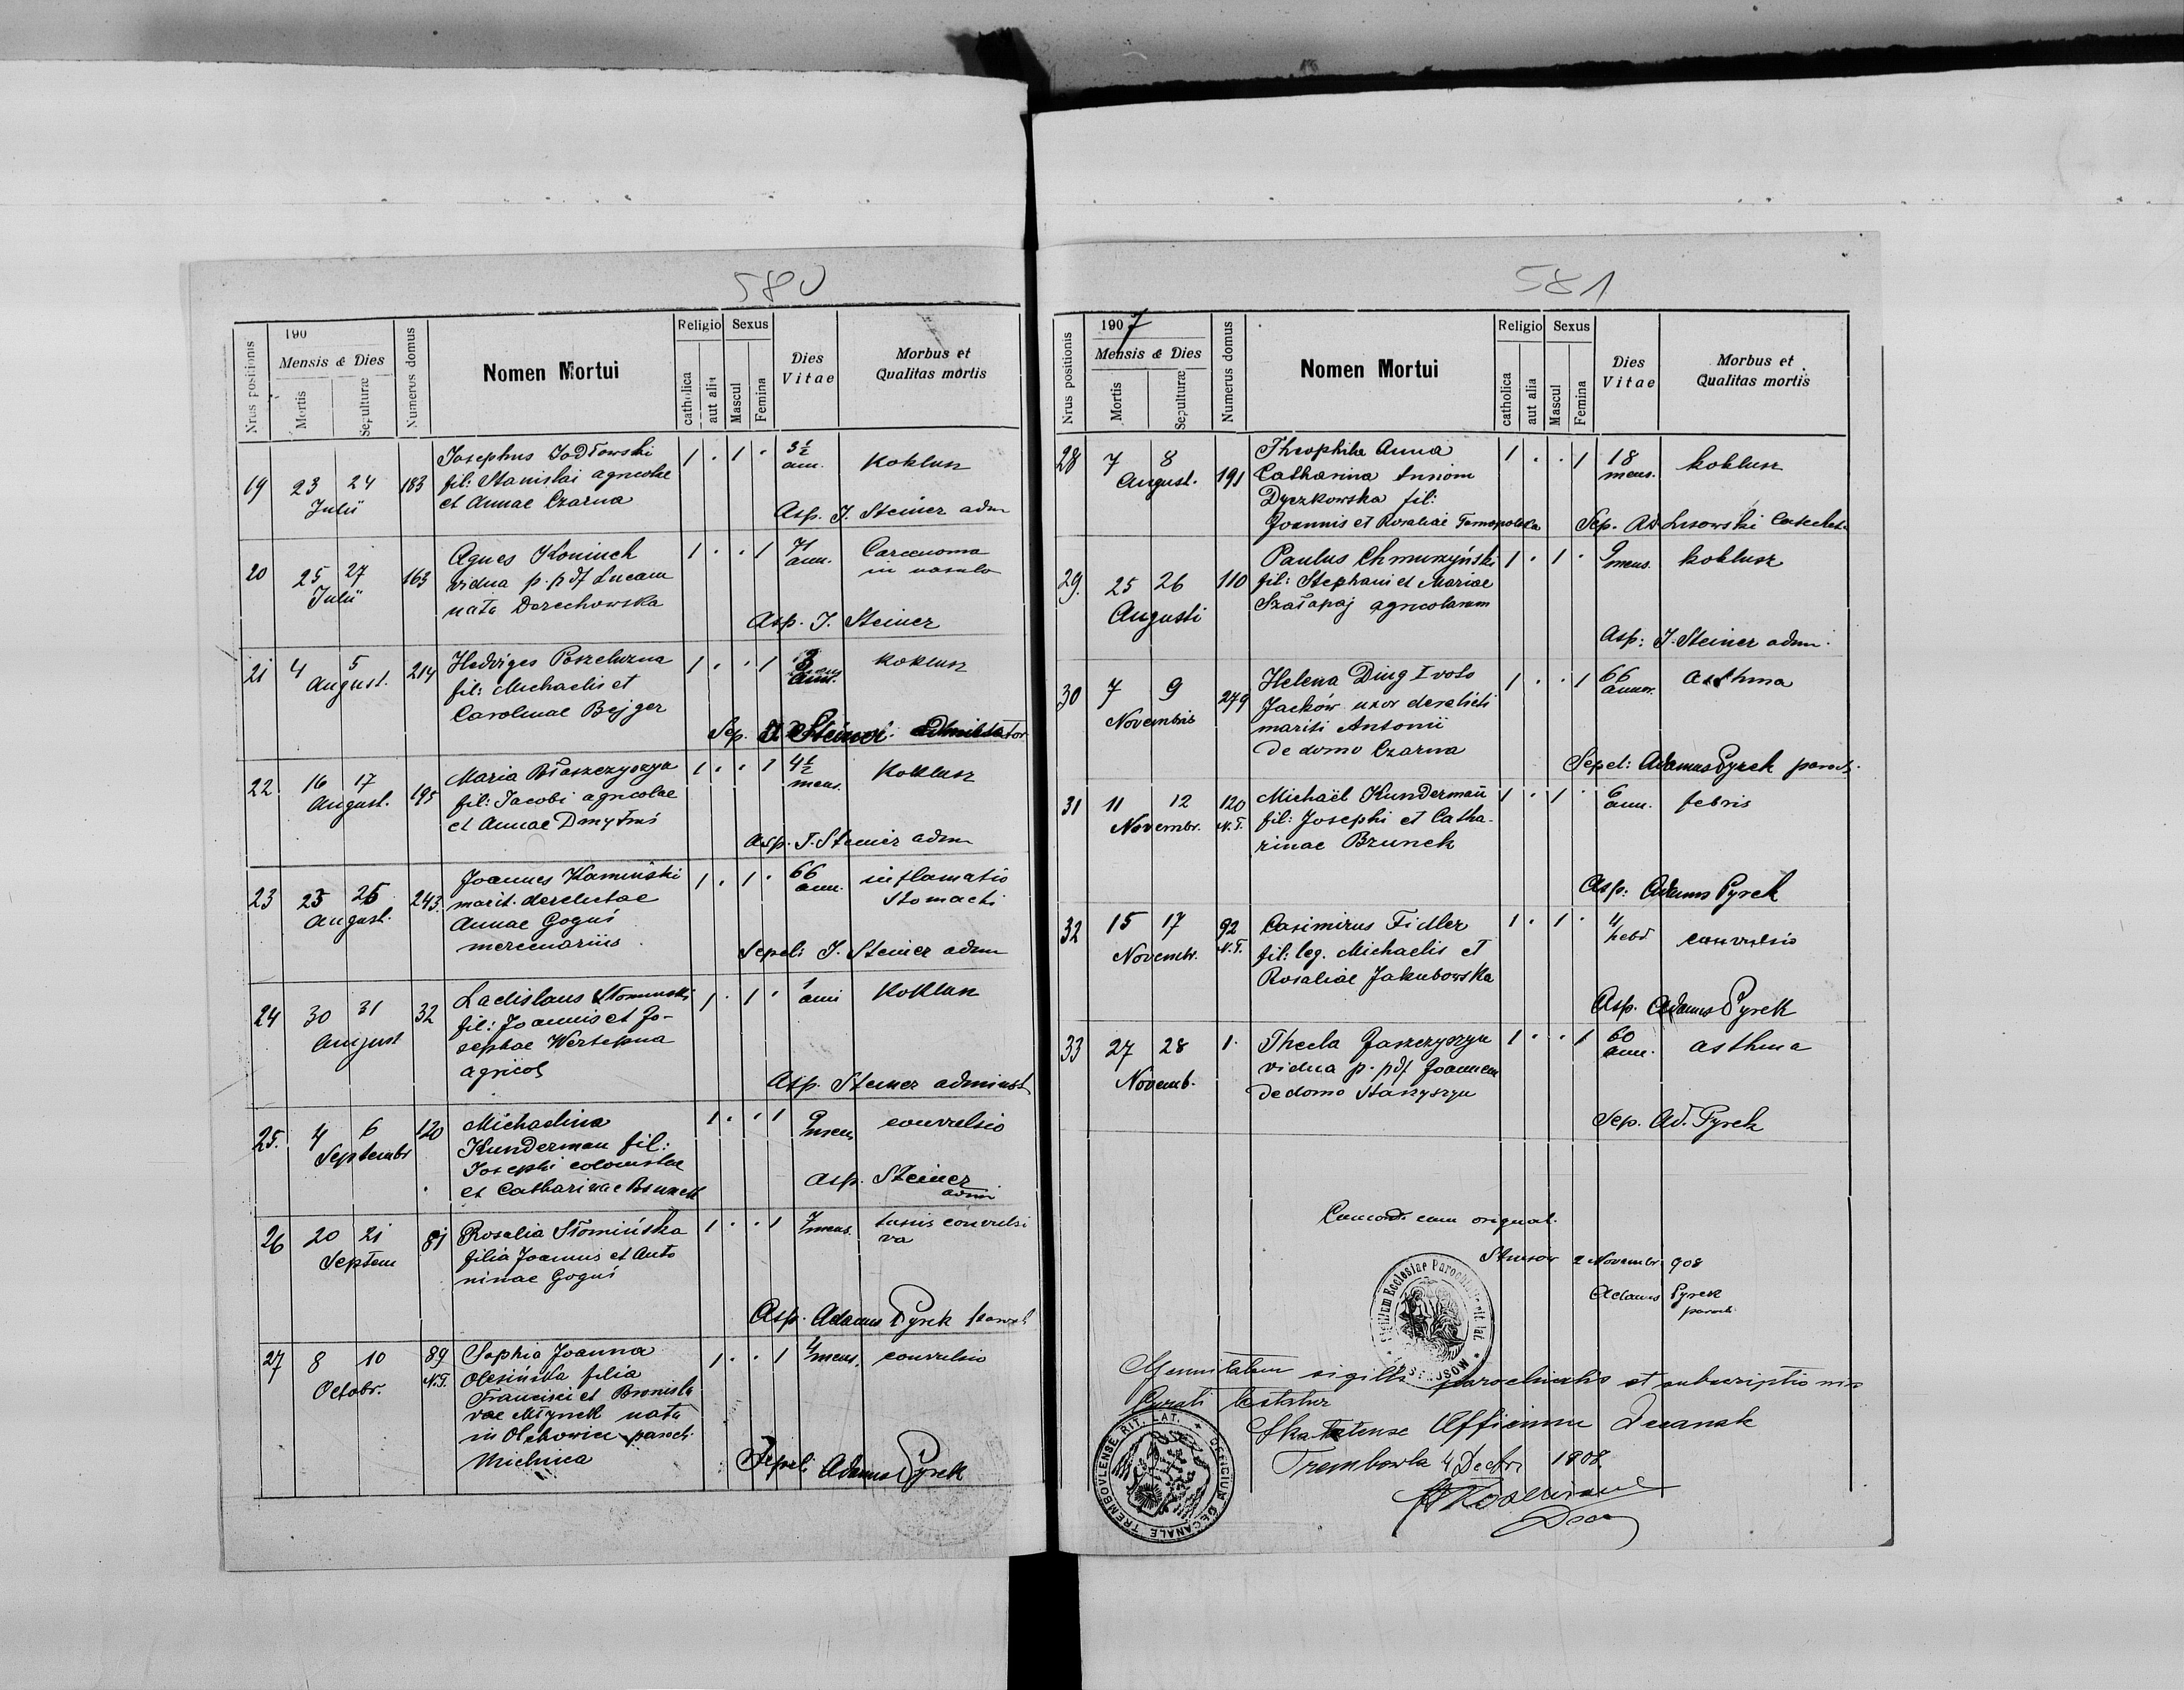 580
190
Nrus positionis
Mensis & Dies
Mortis
Sepulturæ
Numerus domus
Nomen Mortui
Religio
catholica
aut alia
Sexus
Mascul
Femina
Dies Vitae
Morbus et Qualitas mortis
19 23 24 Julii 183
Josephus Jodłowski
fil: Stanislai agricolae
et Annae Czarna
1 . 1 . 3½ ann. Koklusz
Asp. J. Steiner adm
20 25 27 Julii 163
Agnes Koniuch
vidua p. pdf Lucam
nata Darechowska
1 . . 1 71 ann. Carcenoma
in
Asp. J. Steiner
21 4 5 August. 214
Hedviges Poszeluzna
fil: Michaelis et
Carolinae Bejger
1 . . 1 3 Koklusz
Sep. J Steiner Administrator
22 16 17 August. 195
Maria Błaszczyszyn
fil: Jacobi agricolae
et Annae Dmytruś
1 . . 1 4½ mens. Koklusz
Asp. J. Steiner adm
23 25 26 August. 243.
Joannes Kamiński
marit. derelictae
Annae Goguś
mercenarius
1 . 1 . 66 ann. inflamatio
stomachi
Sepeli J. Steiner adm
24 30 31 August 32
Ladislaus Słominski
fil: Joannis et Jo-
sephae Wersepna
agricol
1 . 1 . 1 anni Koklusz
Asp. Steiner administ
25. 4 6 Septembr 120
Michaelina
Kunderman fil:
Josephi colonistae
et Catharinae Brunek
1 . . 1 9 mens convulsio
Asp. Steiner
adm
26 20 21 Septem 81
Rosalia Słomińska
filia Joannis et Anto
ninae Goguś
1 . . 1 7 mens. tussis convulsi
va
Asp. Adamus Pyrek paroch
27 8 10 Octobr. 89 N.T.
Sophia Joanna
Olesińska filia
Francisci et Bronisla
vae Młynek nata
in Olchowiec paroch
Michnica
1 . . 1 4 mens. convulsio
Sepeli Adamus Pyrek
581
1907
Nrus positionis
Mensis & Dies
Mortis
Sepulturæ
Numerus domus
Nomen Mortui
Religio
catholica
aut alia
Sexus
Mascul
Femina
Dies Vitae
Morbus et Qualitas mortis
28 7 8 August. 191
Theophila Anna
Catharina trinom
Dyczkowska fil:
Joannis et Rosaliae Tarnopolska
1 . . 1 18 mens. koklusz
Sep. Ad Lisowski Catechet
29. 25 26 Augusti 110
Paulus Chmurzyński
fil: Stephani et Mariae
Szałapaj agricolarum
1 . 1 . 9 mens. koklusz
Asp: J. Steiner adm.
30 7 9 Novembris 279
Helena Ding I voto
Jacków uxor derelicti
mariti Antonii
de domo Czarna
1 . . 1 66 annor. asthma
Sepel: Adamus Pyrek paroch.
31 11 12 Novembr. 120 N.T.
Michaël Kunderman
fil: Josephi et Catha-
rinae Brunek
1 . 1 . 6 ann. febris
Asp: Adamus Pyrek
32 15 17 Novembr. 92 N.T.
Casimirus Fidler
fil: leg. Michaelis et
Rosaliae Jakubowska
1 . 1 . 4 hebd convulsio
Asp. Adamus Pyrek
33 27 28 Novemb. 1.
Thecla Jaszczyszyn
vidua p. pdf Joannem
de domo Staszyszyn
1 . . 1 60 ann. asthma
Sep. Ad. Pyrek
Concordt cum original.
Strusow 2 Novembr. 908
Adamus Pyrek
paroch
Sigillum Ecclesiae Parochialis rit. lat.
STRUSOW
Genuitatem sigilli parochialis et subscriptionis
Curati testatur
Skalatense Officium Decanale
Trembowla 4 Decbr 1908
OFFICIUM DECANALE TREMBOVLENSE RIT. LAT.